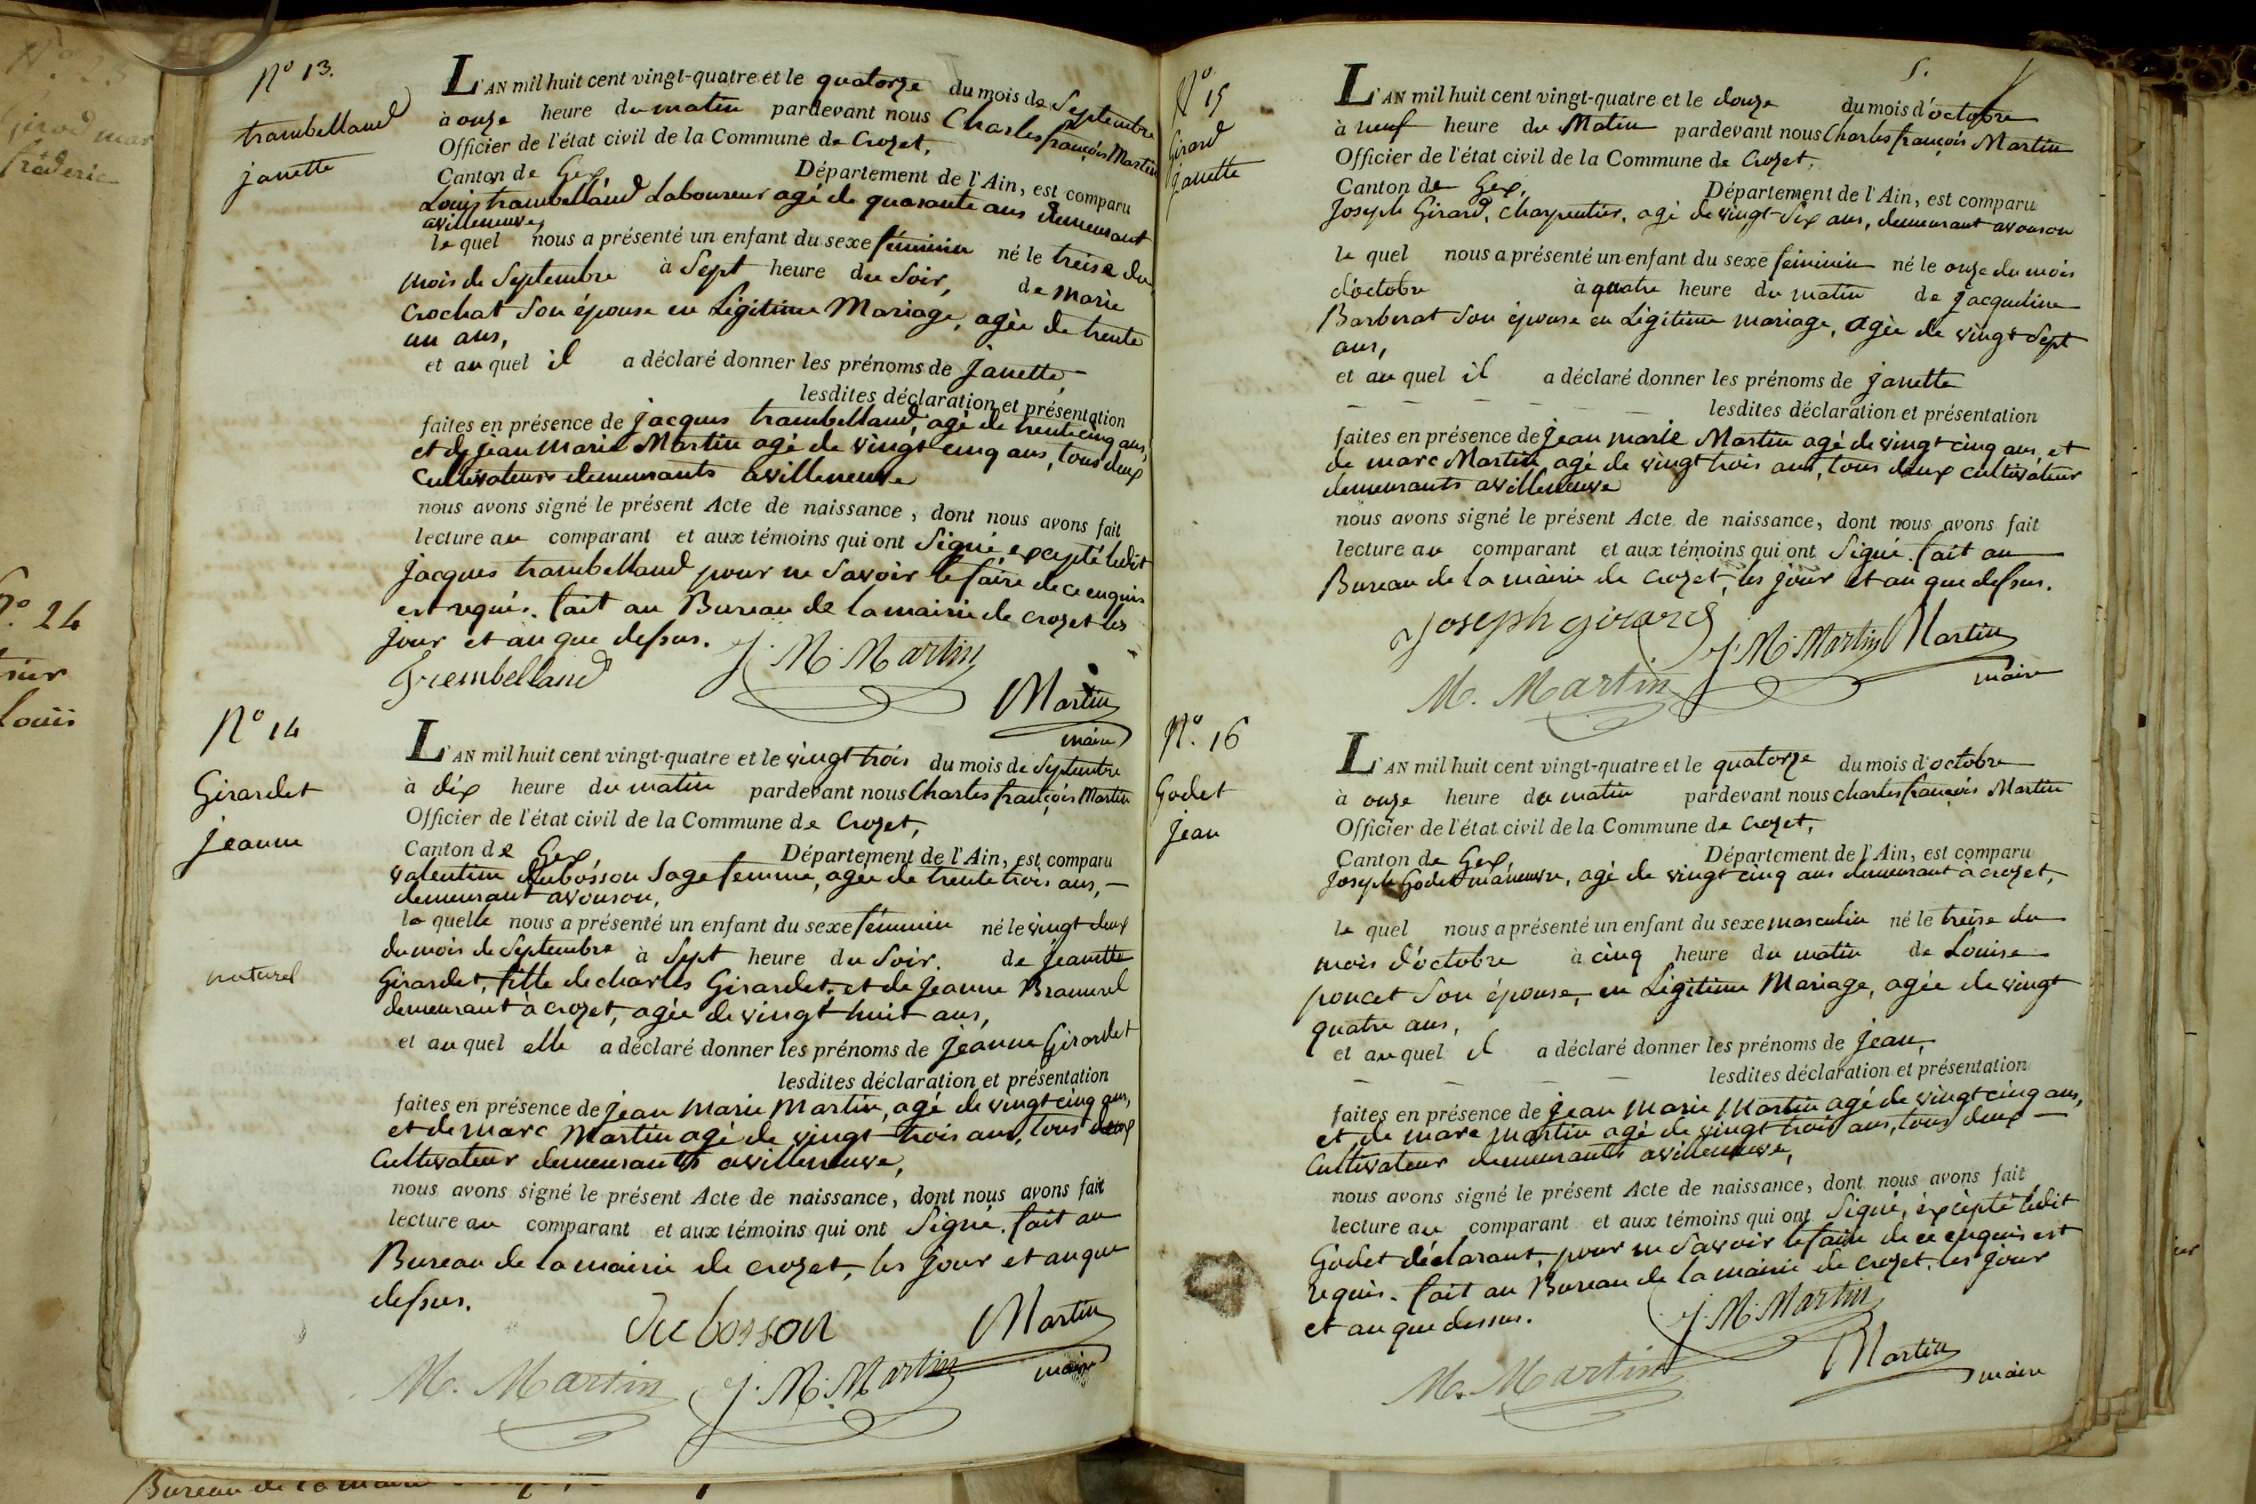 N° 13.
trambelland
janette
L'AN mil huit cent vingt-quatre et le quatorze du mois de Septembre
à onze heure du matin pardevant nous Charles françois Martin
Officier de l'état civil de la Commune de Crozet,
Canton de Gex, Département de l'Ain, est comparu
Louis trambelland Laboureur agé de quarante ans demeurant
avilleneuve,
le quel nous a présenté un enfant du sexe féminin né le treise du
mois de Septembre à Sept heure du Soir, de marie
Crochat Son épouse en Légitime Mariage, agée de trente
un ans,
et au quel il a déclaré donner les prénoms de janette,
lesdites déclaration et présentation
faites en présence de jacques trambelland, agé de trente cinq ans,
et de jean Marie Martin agé de vingt cinq ans, tous deux
Cultivateurs demeurants avilleneuve
nous avons signé le présent Acte de naissance, dont nous avons fait
lecture au comparant et aux témoins qui ont Signé, excepté ledit
jacques trambelland pour ne Savoir le faire de ce enquis
et requis. fait au Bureau de la mairie de crozet les
jour et an que dessus.
Trembelland J. M. Martin
Martin
maire
N° 14
Girardet
jeanne
naturel
L'AN mil huit cent vingt-quatre et le vingt trois du mois de Septembre
à dix heure du matin pardevant nous Charles françois Martin
Officier de l'état civil de la Commune de Crozet,
Canton de Gex, Département de l'Ain, est comparu
valentine dubosson Sage femme, agée de trente trois ans,
demeurant avouson,
la quelle nous a présenté un enfant du sexe féminin né le vingt deux
du mois de Septembre à Sept heure du Soir. de jeanette
Girardet, fille de charles Girardet, et de jeanne
demeurant à crozet, agée de vingt huit ans,
et au quel elle a déclaré donner les prénoms de jeanne Girardet
lesdites déclaration et présentation
faites en présence de jean Marie Martin, agé de vingt cinq ans,
et de marc Martin agé de vingt trois ans, tous deux
Cultivateur demeurants avilleneuve,
nous avons signé le présent Acte de naissance, dont nous avons fait
lecture au comparant et aux témoins qui ont Signé. fait au
Bureau de la mairie de crozet, les jour et an que
dessus.
dubosson Martin
maire
M. Martin J. M. Martin
5.
N° 15
Girard
janette
L'AN mil huit cent vingt-quatre et le douze du mois d'octobre
à neuf heure du Matin pardevant nous Charles françois Martin
Officier de l'état civil de la Commune de Crozet,
Canton de Gex, Département de l'Ain, est comparu
Joseph Girard, charpentier, agé de vingt Six ans, demeurant avouson
le quel nous a présenté un enfant du sexe féminin né le onze du mois
d'octobre à quatre heure du matin de jacqueline
Barberat Son épouse en Légitime mariage, agée de vingt Sept
ans,
et au quel il a déclaré donner les prénoms de janette
lesdites déclaration et présentation
faites en présence de jean marie Martin agé de vingt cinq ans, et
de marc Martin, agé de vingt trois ans, tous deux cultivateur
demeurants avilleneuve
nous avons signé le présent Acte de naissance, dont nous avons fait
lecture au comparant et aux témoins qui ont Signé. fait au
Bureau de la mairie de crozet, les jour et an que dessus.
Joseph girard J. M. Martin Martin
maire
M. Martin
N°. 16
Godet
jean
L'AN mil huit cent vingt-quatre et le quatorze du mois d'octobre
à onze heure du matin pardevant nous charles françois Martin
Officier de l'état civil de la Commune de Crozet,
Canton de Gex, Département de l'Ain, est comparu
Joseph Godet manœuvre, agé de vingt cinq ans demeurant à crozet,
le quel nous a présenté un enfant du sexe masculin né le treise du
mois d'octobre à cinq heure du matin de Louise
poncet Son épouse, en Légitime Mariage, agée de vingt
quatre ans,
et au quel il a déclaré donner les prénoms de jean,
lesdites déclaration et présentation
faites en présence de jean Marie Martin agé de vingt cinq ans,
et de marc martin agé de vingt trois ans, tous deux
Cultivateur demeurants avilleneuve,
nous avons signé le présent Acte de naissance, dont nous avons fait
lecture au comparant et aux témoins qui ont Signé, excèpté ledit
Godet déclarant, pour ne Savoir le faire de ce enquis et
requis. fait au Bureau de la mairie de crozet. les jour
et an que dessus.
J. M. Martin
M. Martin Martin
maire
N°. 24
Louis